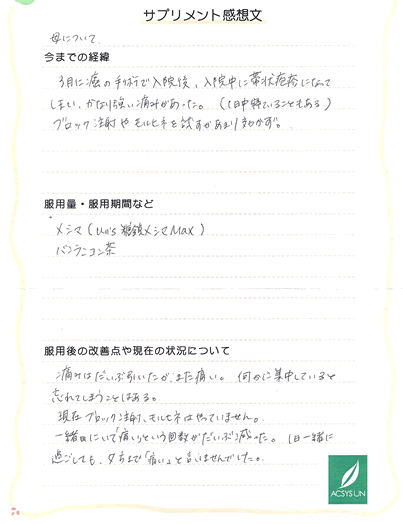 サプリメント感想文
母について
今までの経緯
3月に癌の手術で入院後、入院中に帯状疱疹になって
しまい、かなり強い痛みがあった。(1日中寝ていることもある)
ブロック注射やモルヒネを試すがあまり効かず。
服用量・服用期間など
メシマ(Un's 糖鎖メシマMax)
バンランコン茶
服用後の改善点や現在の状況について
痛みはだいぶ引いたが、まだ痛い。何かに集中していると
忘れてしまうことはある。
現在ブロック注射、モルヒネはやっていません。
一緒にいて「痛い」という回数がだいぶ減った。1日一緒に
過ごしても、夕方まで「痛い」と言いませんでした。
ACSYSUN